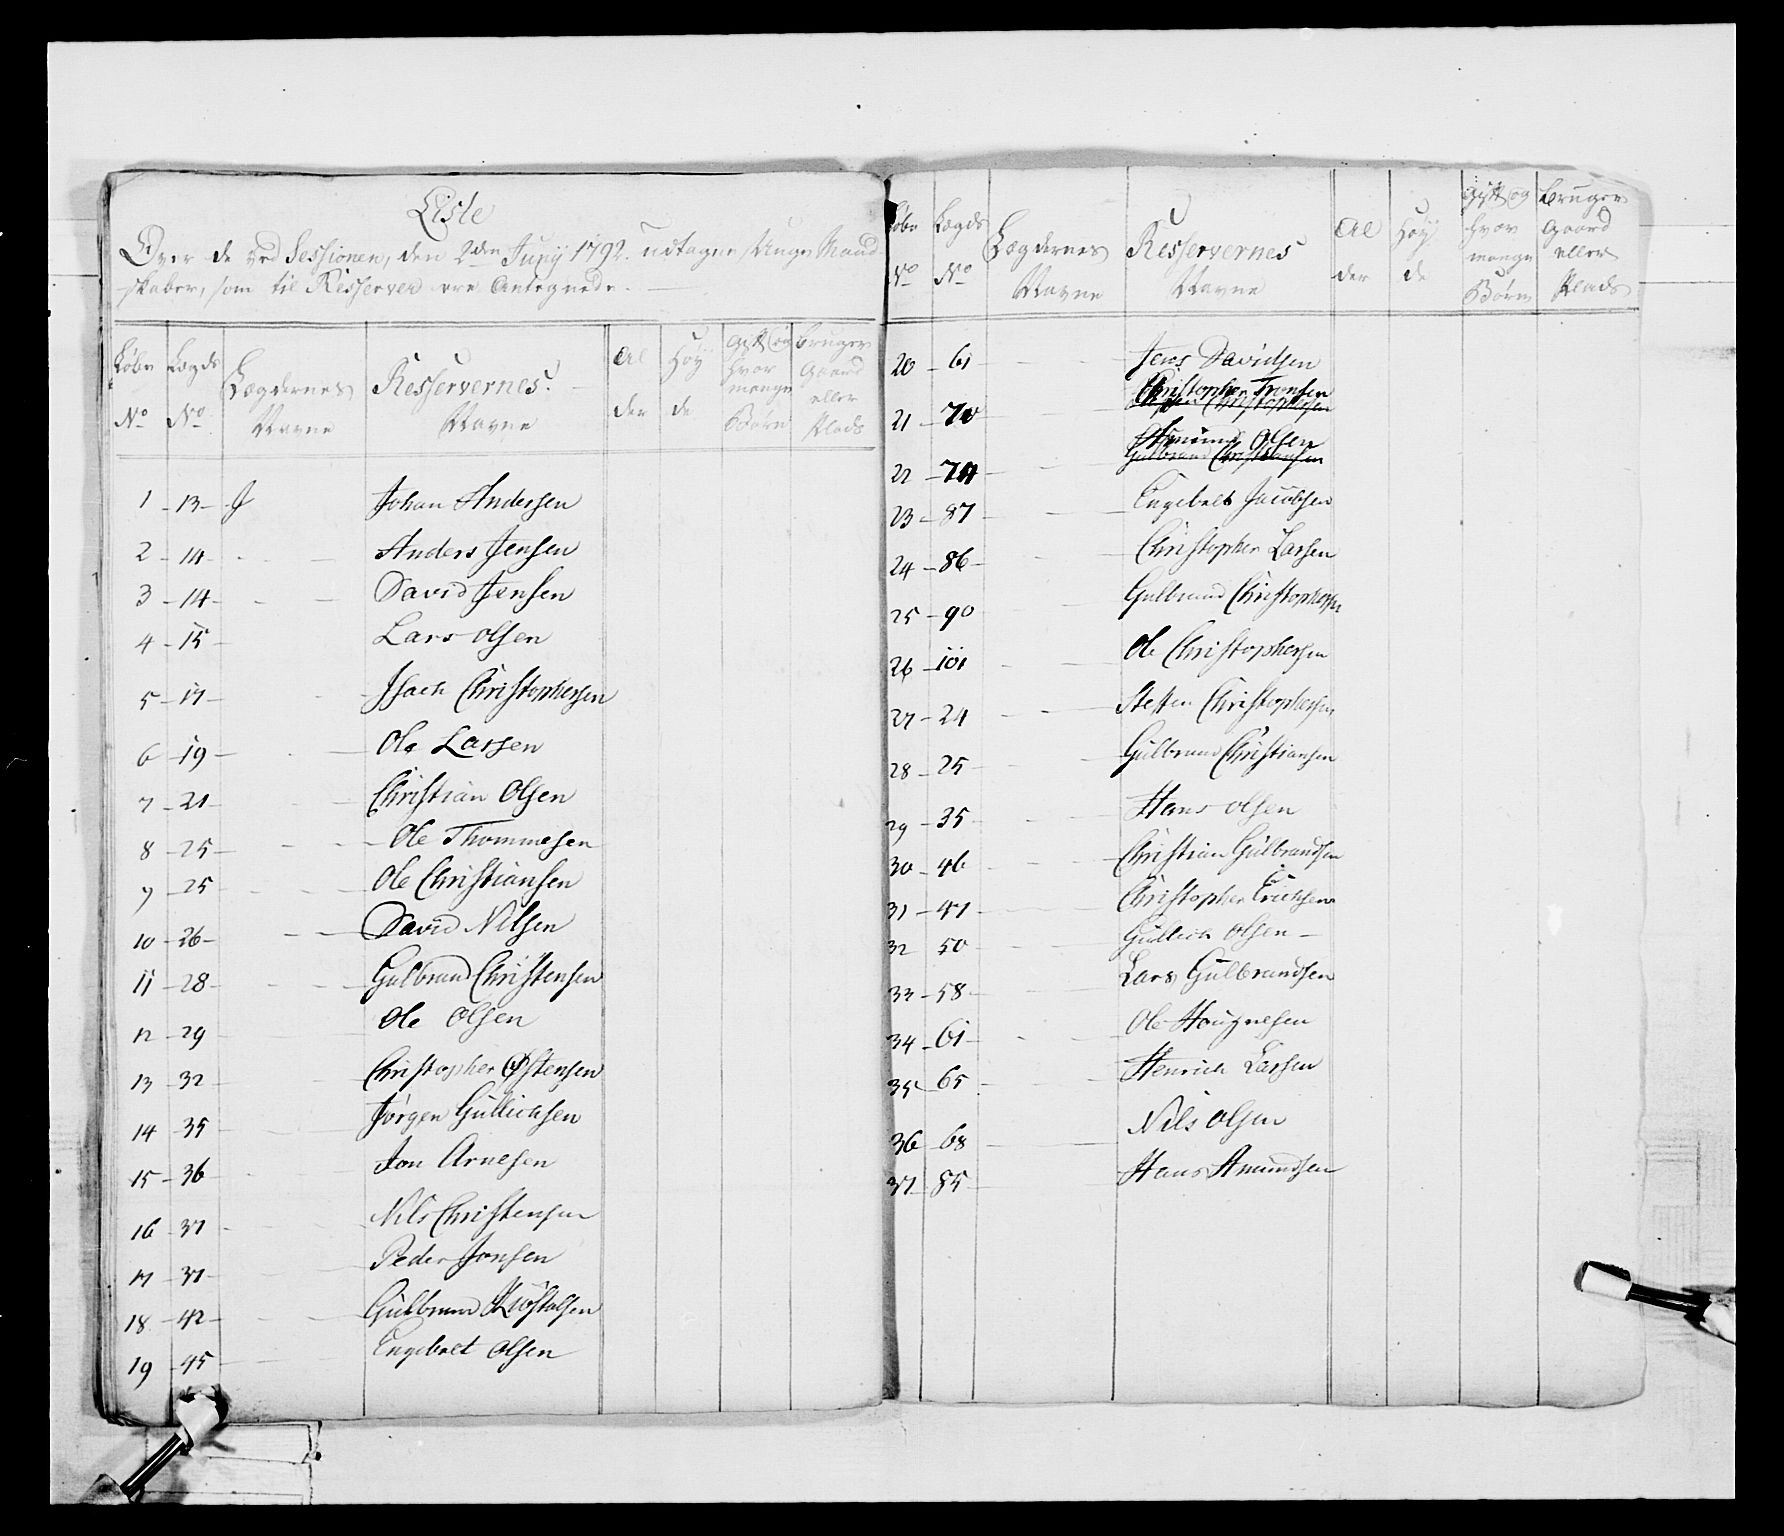 Liste
Over de ved Sessionen, den 2den Junij 1792. udtagne Unge Mand
skaber, som til Resserver ere Antegnede.
Løbe No Lægds No Lægdernes Navne Resservernes Navne Al der Høy de Gift og hvor mange Børn Bruger Gaard eller Plads
1 - 13 - J Johan Andersen
2 - 14 - Anders Jensen
3 - 14 - David Jensen
4 - 15 - Lars Olsen
5 - 17 - Isach Christophersen
6 - 19 - Ole Larsen
7 - 21 - Christian Olsen
8 - 25 - Ole Thommesen
9 - 25 - Ole Christiansen
10 - 26 - David Nilsen
11 - 28 - Gulbrand Christensen
12 - 29 Ole Olsen
13 - 32 - Christopher Østensen
14 - 35 - Jørgen Gullichsen
15 - 36 - Jon Arnesen
16 - 37 - Nils Christensen
17 - 37 - Peder Jonsen
18 - 42 - Gulbrand
19 - 45 - Engebret Olsen
Løbe No Lægds No Lægdernes Navne Resservernes Navne Al der Høy de Gift og hvor mange Børn Bruger Gaard eller Plads
20 - 61 - Jens Davidsen
Christopher Tronsen
21 - 70 Christophersen
Amund Olsen
22 - 74 - Gulbrand Christiansen
23 - 87 - Engebret Jacobsen
24 - 86 - Christopher Larsen
25 - 90 Gulbrand Christophersen
26 - 101 Ole Christophersen
27 - 24 Steffen Christophersen
28 - 25 - Gulbrand Christiansen
29 - 35 - Hans Olsen
30 - 46 - Christian Gulbrandsen
31 - 47 - Christopher Erichsen
32 50 - Gullich Olsen -
33 - 58 - Lars Gulbrandsen
34 - 61 - Ole Haugnesen
35 - 65 - Henrich Larsen
36 - 68 - Nils Olsen
37 - 85 - Hans Amundsen